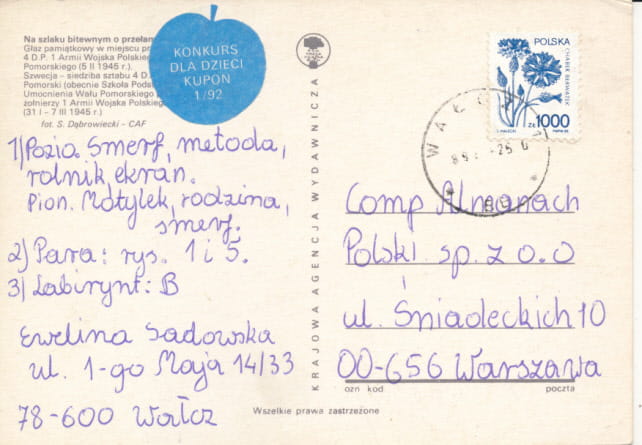 Na szlaku bitewnym o przełam
Głaz pamiątkowy w miejscu pr
4 D.P. 1 Armii Wojska Polskieg
Pomorskiego (5 II 1945 r.)
Szwecja – siedziba sztabu 4 D.
Pomorski (obecnie Szkoła Pods
Umocnienia Wału Pomorskiego
żołnierzy 1 Armii Wojska Polskieg
(31 I - 7 III 1945 r.)
fot. S. Dąbrowiecki - CAF
KONKURS
DLA DZIECI
KUPON
1/92
1) Pozio Smerf, metoda,
rolnik ekran.
Pion. Motylek, rodzina,
smerf.
2) Para: rys. 1 i 5.
3) Labirynt: B
Ewelina Sadowska
ul. 1-go Maja 14/33
78-600 Wałcz
KRAJOWA AGENCJA WYDAWNICZA
POLSKA
CHABER BŁAWATEK
ZŁ 1000
WAŁCZ 1
Comp Almanach
Polski sp. z o.o
ul. Śniadeckich 10
00-656 Warszawa
ozn kod
poczta
Wszelkie prawa zastrzeżone